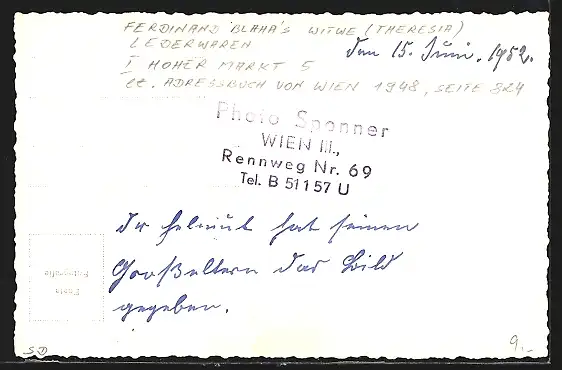 FERDINAND BLAHA'S WITWE (THERESIA)
LEDERWAREN
I HOHER MARKT 5
lt. ADRESSBUCH VON WIEN 1948, SEITE 824
den 15. Juni. 1952.
Photo Spanner
WIEN III.,
Rennweg Nr. 69
Tel. B 51157 U
Der Helmut hat seinen
Großeltern das Bild
gegeben.
Echte
Fotografie
SD
9.-